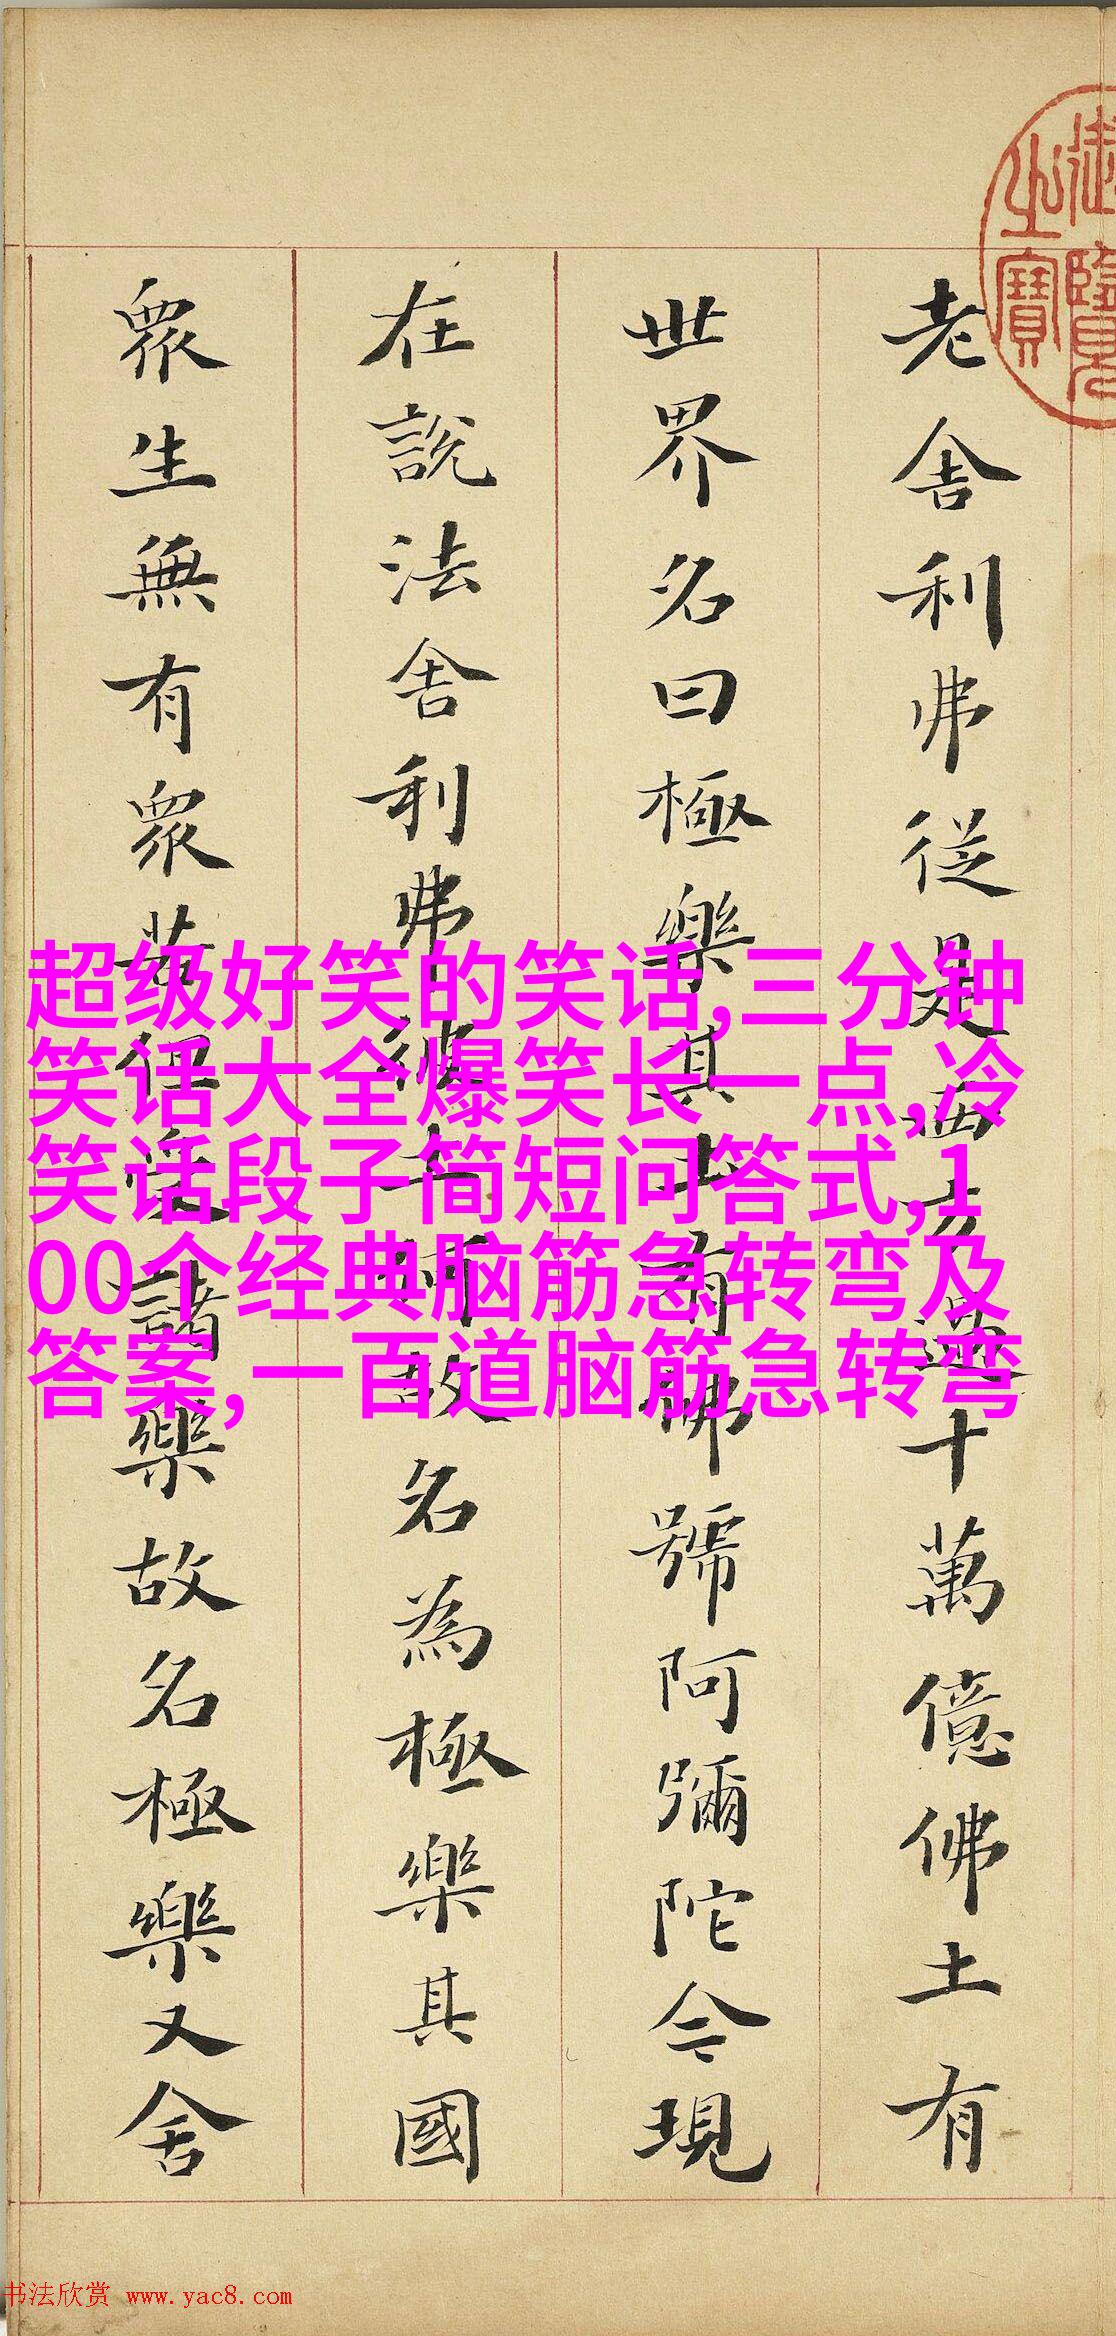 御覽之寶
老舍利弗從是西方過十萬億佛土有
世界名曰極樂其土有佛號阿彌陀今現
在說法舍利弗彼土何故名為極樂其國
眾生無有眾苦但受諸樂故名極樂又舍
超级好笑的笑话,三分钟
笑话大全爆笑长一点,冷
笑话段子简短问答式,1
00个经典脑筋急转弯及
答案,一百道脑筋急转弯
书法欣赏 www.yac8.com